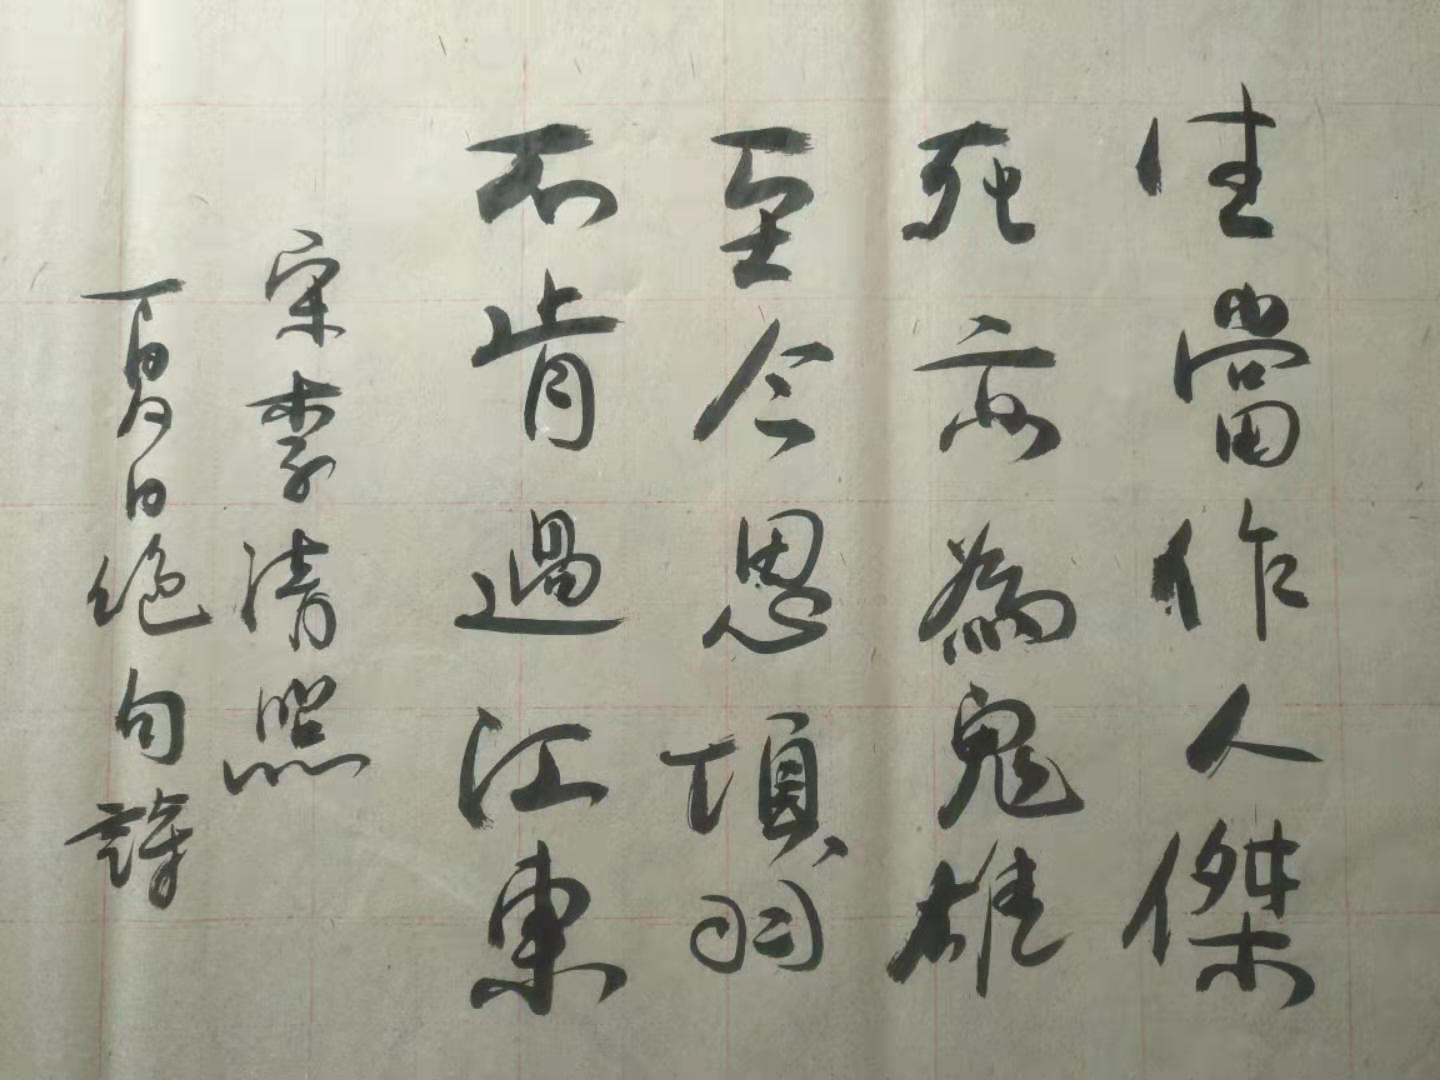 生當作人傑
死亦為鬼雄
至今思項羽
不肯過江東
宋李清照
夏日絶句詩